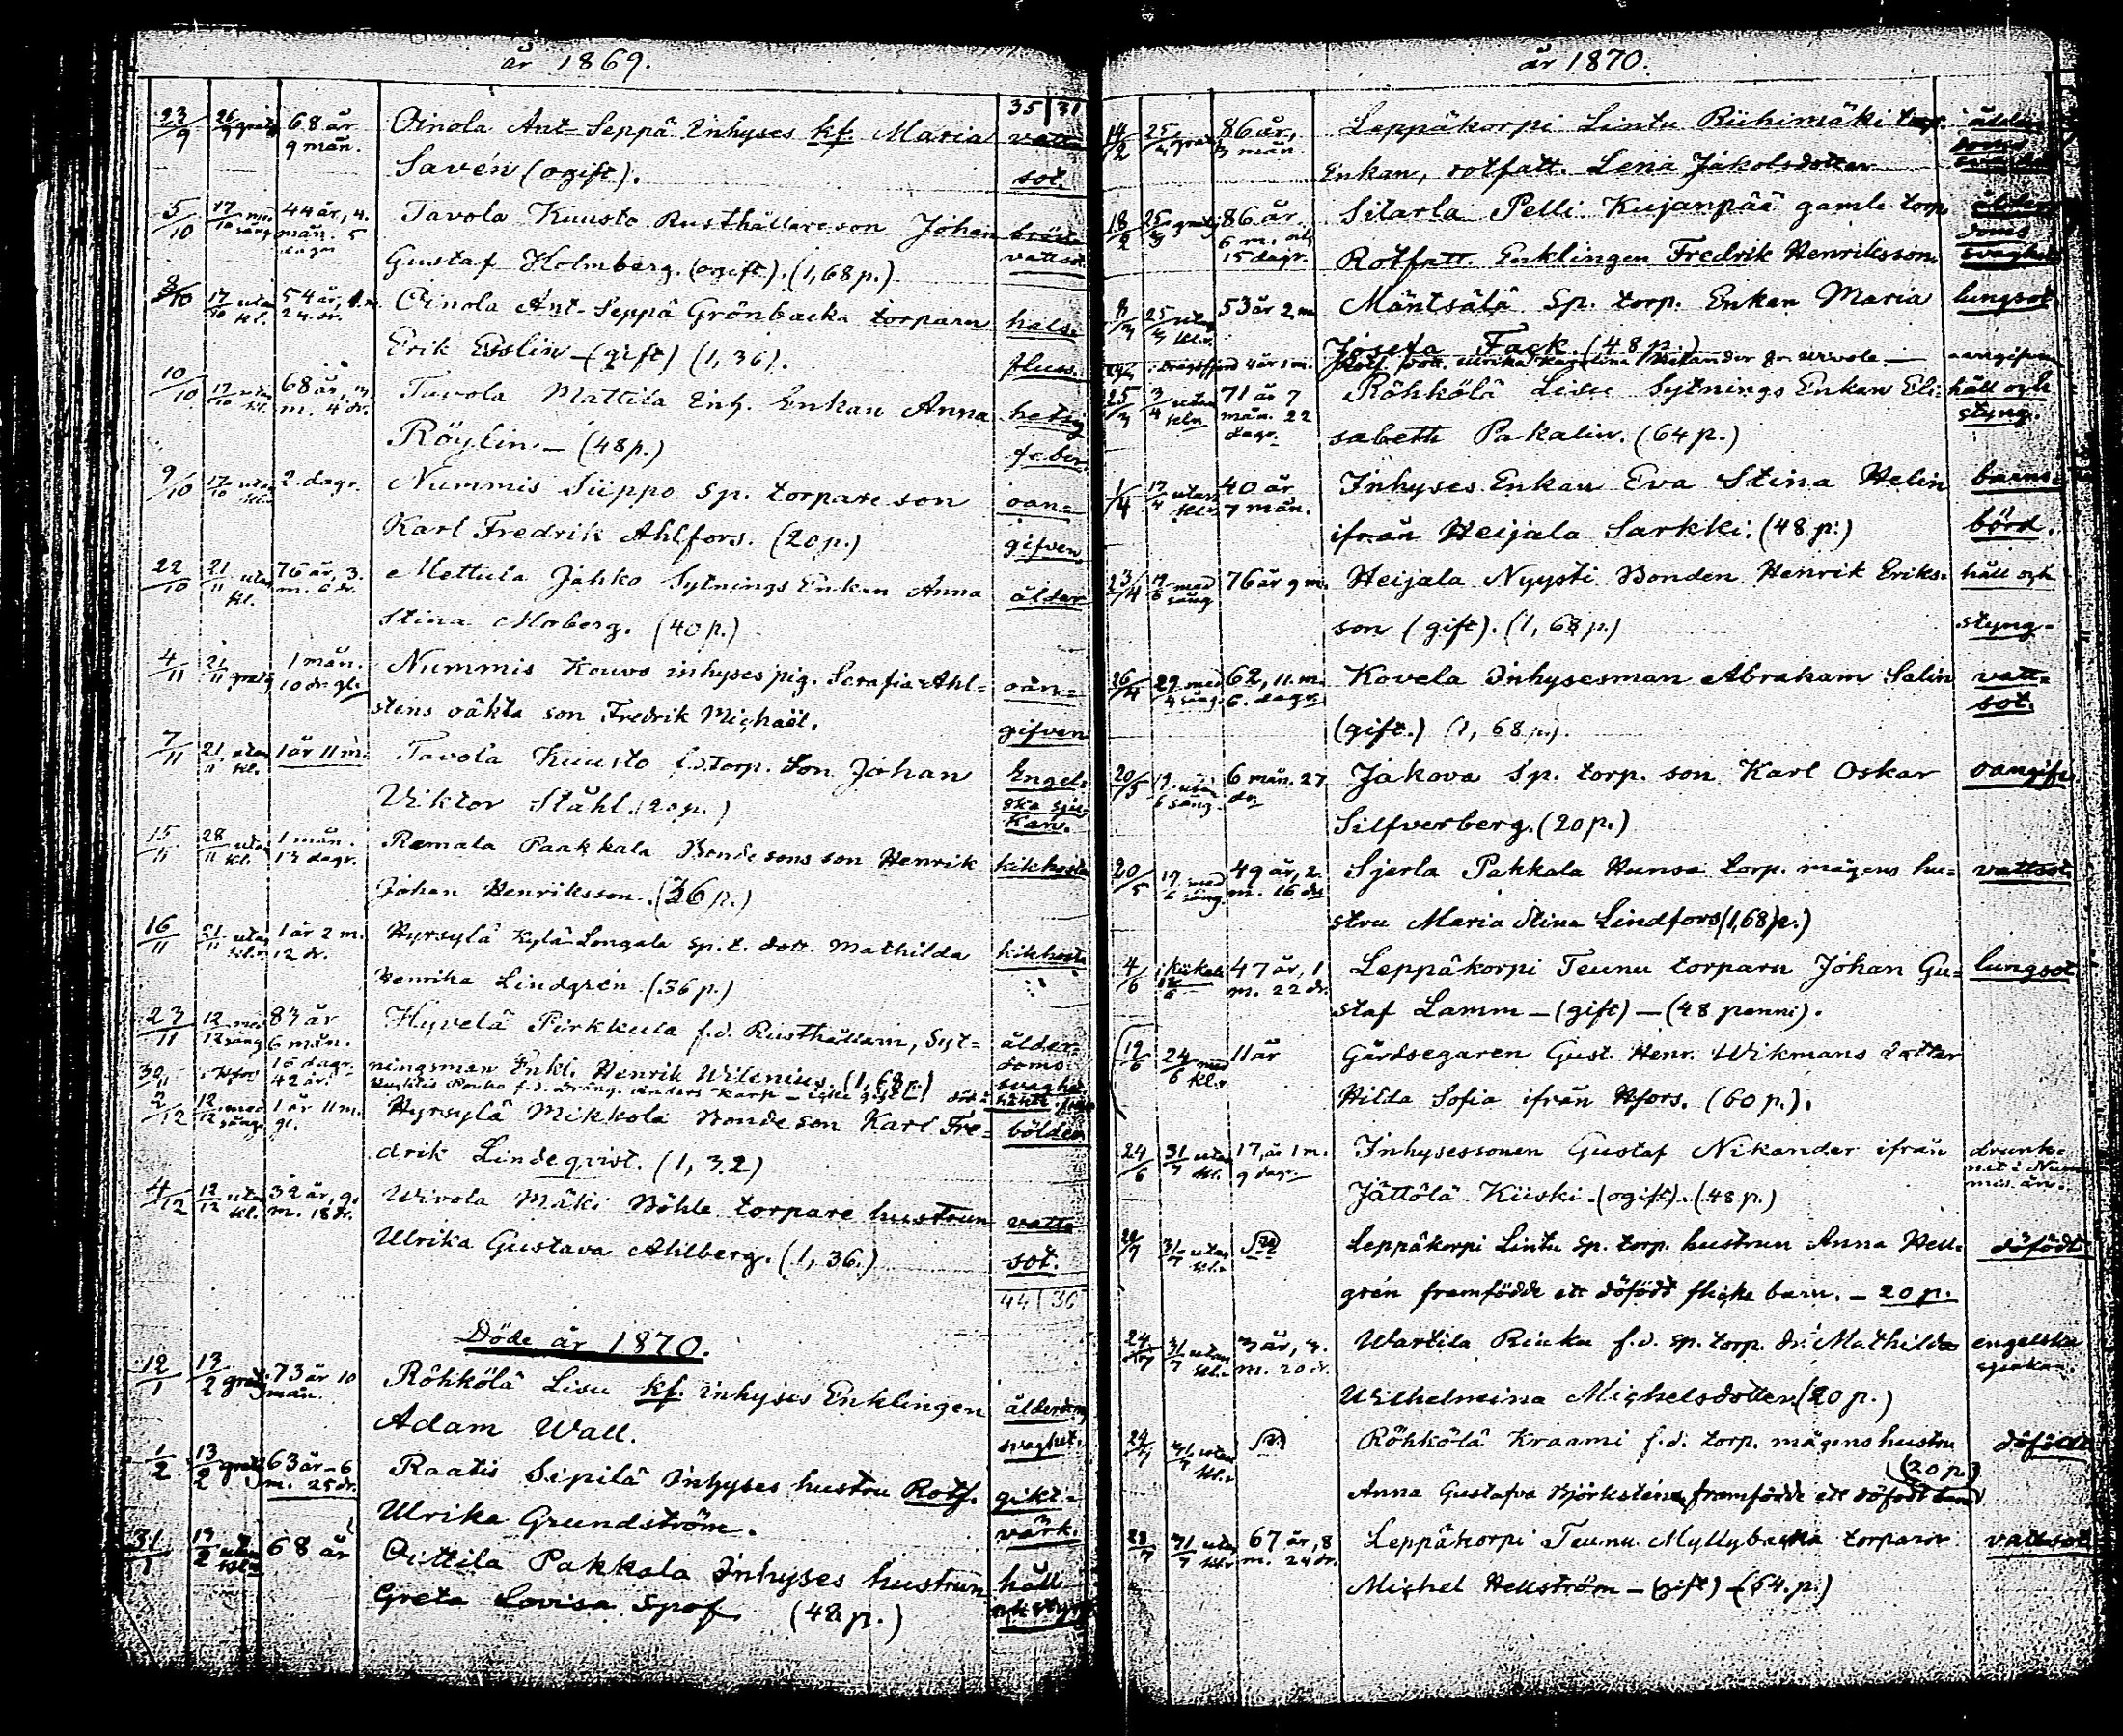 år 1869.
35 31
23/9 26/9 gratis 68 år Oinola Ant-Seppä Inhyses kf. Maria vatt=
9 mån. Savén (ogift). sot.
5/10 17/10 44 år, 4. Tavola Kuusto Rusthållareson Johan bröst
mån. 5 dagar Gustaf Holmberg. (ogift). (1,68 p.) vattsot.
8/10 17/10 utan kl. 54 år, Oinola Ant-Seppä Grönbacka torparen hals=
24 dr. Erik Esslin – (gift) (1,36). fluss.
10/10 17/10 utan kl. 68 år, Tavola Mattila Inh. Enkan Anna hetsig
m. 4 dr. Röylin. – (48 p.) feber.
9/10 17/10 utan kl. 2 dagr. Nummis Siippo Sp. torpare son oan=
Karl Fredrik Ahlfors. (20 p.) gifven
22/10 21/11 utan kl. 76 år, 3. Mettula Jahko Sytnings Enkan Anna ålder
m. 6 dr. Stina Moberg. (40 p.)
4/11 21/11 gratis 1 mån. Nummis Kouvo inhyses pig. Serafia Ahl= oan=
10 dr. gl. stens oäkta son Fredrik Michaël. gifven
7/11 21/11 utan kl. 1 år 11 m. Tavola Kuusto f.d. torp. son Johan Engel=
Viktor Ståhl. (20 p.) ska sju=
kan.
15/11 28/11 utan kl. 1 mån. Remala Paakkala Bonde sons son Henrik kikhosta
13 dagr. Johan Henriksson. (36 p.)
16/11 21/11 utan kl. 1 år 2 m. Hyrsylä Kylä-Longala sp. t. dott. Mathilda kikhosta
12 dr. Henrika Lindgrén. (36 p.)
23/11 12/12 med sång 83 år Hyvelä Pirkkula f.d. Rusthållaren, Syt= ålder=
6 mån. 16 dagr. ningsman Enkl. Henrik Wilenius. (1,68 p.) doms
30/11 i Hfors 42 år. f.d. dräng. Anders Karp svaghet
2/12 12/12 med sång 1 år 11 m. Hyrsylä Mikkola Bonde son Karl Fre= bölder
gl. drik Lindeqvist. (1,32)
4/12 12/12 utan kl. 32 år, 9. Wivola Mäki Böhle torpare hustrun vatt=
m. 18 dr. Ulrika Gustava Ahlberg. (1,36.) sot.
44 36
Döde år 1870.
12/1 13/2 gratis 73 år 10 Röhkölä Lisu kf. inhyses Enklingen ålderdoms
mån. Adam Wall. svaghet.
1/2 13/2 gratis 63 år – 6 Raatis Sipilä Inhyses hustru Rotf. gikt=
m. 25 dr. Ulrika Grundström. värk.
31/1 13/2 utan kl. 68 år Oittila Pakkala Inhyses hustrun håll
Greta Lovisa Spof (48 p.) och styng
år 1870.
14/2 25/3 gratis 86 år, Leppäkorpi Lintu Riihimäki torp. ålder
3 mån. Enkan, rotfatt. Lena Jakobsdotter
18/2 25/3 gratis 86 år Sitarla Pelli Kujanpää gamle torp. ålder
6 m. och 15 dagr. Rotfatt. Enklingen Fredrik Henriksson, doms svaghet
8/3 25/3 utan kl. 53 år 2 m Mäntsälä Sp. torp. Enkan Maria lungsot
Josefa Fack (48 p.)
4 år 1 m. Rotf. dott. Ulrika Karolina oangifven
25/3 3/4 utan kl. 71 år 7 Röhkölä Lisu Sytnings Enkan Eli= håll och
mån. 22 dagr. sabeth Pakalin. (64 p.) styng.
1/4 17/4 utan kl. 40 år Inhyses Enkan Eva Stina Helin barns=
7 mån. ifrån Heijala Sarkki. (48 p.) börd.
23/4 med sång 76 år 9 m. Heijala Nyysti Bonden Henrik Eriks= håll och
son (gift). (1,68 p.) styng.
26/4 29/4 med sång. 62, 11. m. Kovela Inhysesman Abraham Salin vatt=
6. dagr. (gift.) (1,68 p.). sot.
20/5 19/6 utan sång. 6 mån. 27 Jakova Sp. torp. son Karl Oskar oangifv.
dr. Silfverberg. (20 p.)
20/5 19/6 med sång. 49 år, 2. Sjerla Pakkala Hunsa torp. mågens hu= vattsot.
m. 16 dr stru Maria Stina Lindfors (1,68 p.)
4/6 12/6 47 år, 1 Leppäkorpi Teunu torparn Johan Gu= lungsot
m. 22 dr. staf Lamm – (gift) – (48 penni).
19/6 24/6 med kl. 11 år Gårdsegaren Gust. Henr. Wikmans dotter
Hilda Sofia ifrån Hfors. (60 p.).
24/6 31/7 utan kl. 17 år 1 m. Inhysessonen Gustaf Nikander ifrån drunk=
9 dagr. Jättölä Kiiski. (ogift). (48 p.) nat i Num=
mis ån.
31/7 utan kl. Leppäkorpi Lintu sp. torp. hustrun Anna Hell= döfödt
grén framfödde ett döfödt flicke barn. – 20 p.
24/7 31/7 utan kl. 3 år, Wartila Rinku f.d. sp. torp. dr. Mathilda engelska
m. 20 dr. Wilhelmina Michelsdotter. (20 p.) sjukan.
24/7 31/7 utan kl. Röhkölä Kraami f.d. torp. mågens hustru döfödt
(20 p.)
Anna Gustafva Björkstén framfödde ett döfödt barn
28/7 31/7 utan kl. 67 år, 8 Leppäkorpi Teunu Myllybacka torparen vattsot
m. 24 dr. Michel Hellström – (gift) – (64. p.)